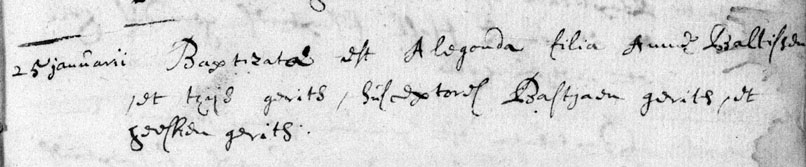 25 januarii Baptizata est Alegonda filia Annæ Baltissen
, et thijs gerits , suscextores Bastjaen gerits , et
geesken gerits .